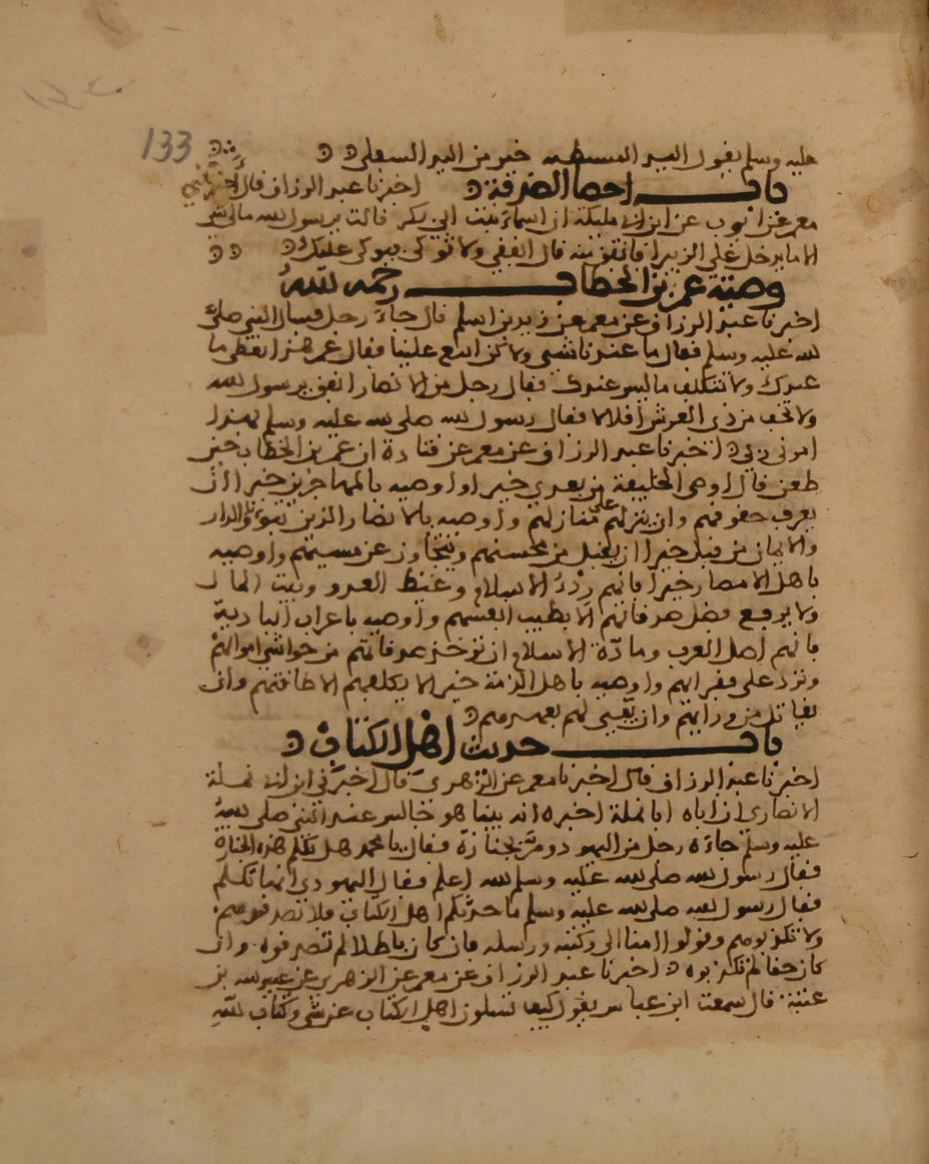 133
عليه وسلم يقول اليد المنطية خير من اليد السفلى
باب احصا الصدقة اخبرنا عبد الرزاق قال اخبرني
معمر عن ايوب عن ابن ابي مليكة ان اسماء بنت ابي بكر قالت يرسول الله مالي شي
الا ما يدخل علي الزبير افانفق منه قال انفقي ولا توكي فيوكى عليك
وصية عمر بن الخطاب رحمه الله
اخبرنا عبد الرزاق عن معمر عن زيد بن اسلم قال جاء رجل فسال النبي صلى
الله عليه وسلم فقال ما عندنا شي ولاكن ابتع علينا فقال عمر هذا تعطي ما
عندك ولا تتكلف ما ليس عندك فقال رجل من الانصار انفق يرسول الله
ولا تخف من ذي العرش اقلالا فقال رسول الله صلى الله عليه وسلم بهذا
امرني ربي اخبرنا عبد الرزاق عن معمر عن قتادة ان عمر بن الخطاب حين
طعن قال اوصي الخليفة من بعدي خيرا واوصيه بالمهاجرين خيرا ان
يعرف حقوقهم وان ينزلهم على منازلهم واوصيه بالانصار الذين تبوءوا الدار
والايمان من قبل خيرا ان يقبل من محسنهم ويتجاوز عن مسيئهم واوصيه
باهل الامصار خيرا فانهم ردء الاسلام وغيظ العدو وبيت المال
ولا يرفع فضل صدقاتهم الا بطيب انفسهم واوصيه باعراب البادية
فانهم اصل العرب ومادة الاسلام ان توخذ صدقاتهم من حواشي اموالهم
وترد على فقرايهم واوصيه باهل الذمة خيرا الا يكلفهم الا طاقتهم وان
يقاتل من ورايهم وان يفي لهم بعهدهم
باب حديث اهل الكتاب
اخبرنا عبد الرزاق قال اخبرنا معمر عن الزهري قال اخبرني ابن ابي نملة
الانصاري ان اباه ابا نملة اخبره انه بينا هو جالس عند النبي صلى الله
عليه وسلم جاءه رجل من اليهود ومر بجنازة فقال يا محمد هل تكلم هذه الجنازة
فقال رسول الله صلى الله عليه وسلم الله اعلم فقال اليهودي انها تكلم
فقال رسول الله صلى الله عليه وسلم ما حدثكم اهل الكتاب فلا تصدقوهم
ولا تكذبوهم وقولوا امنا الى وكتبه ورسله فان كان باطلا لم تصدقوه وان
كان حقا لم تكذبوه اخبرنا عبد الرزاق عن معمر عن الزهري عن عبيد الله بن
عتبة قال سمعت ابن عباس يقول كيف تسلون اهل الكتاب عن شي وكتاب الله